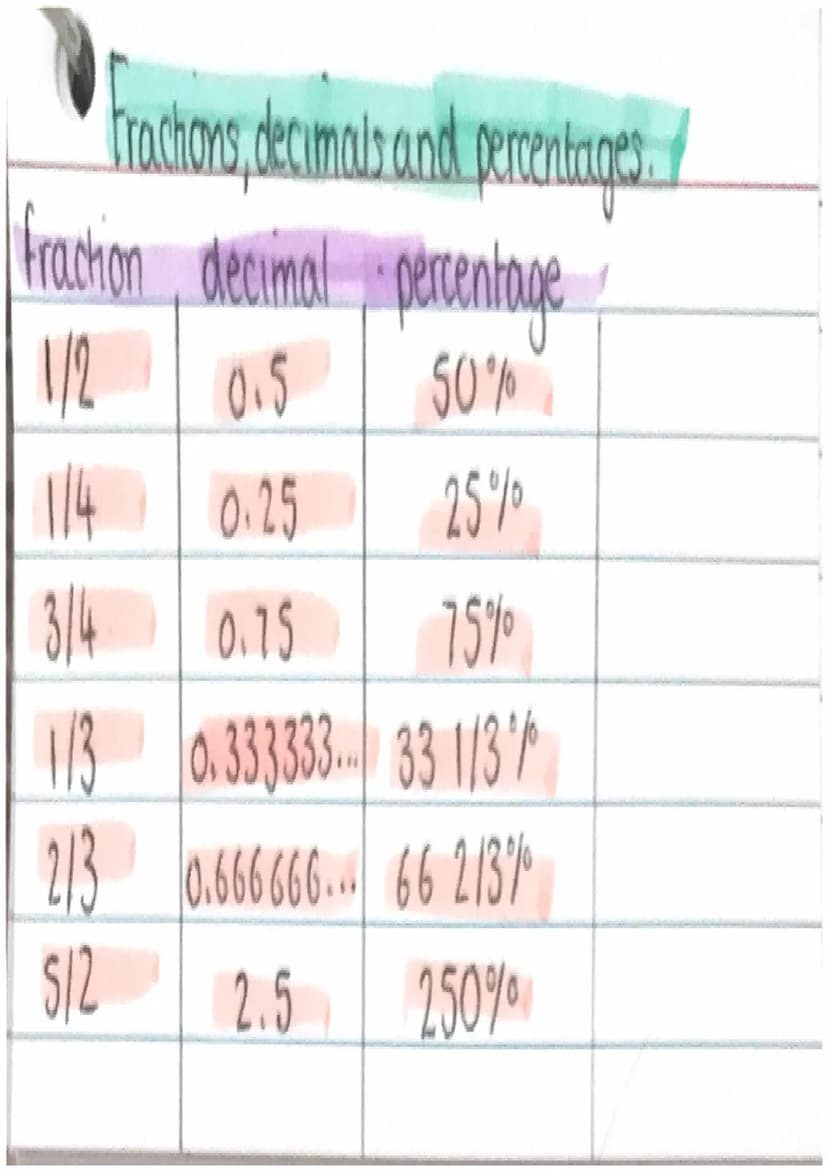 Fractions, decimals and percentages.
fraction decimal percentage
1/2 0.5 50%
1/4 0.25 25%
3/4 0.75 75%
1/3 0.333333... 33 1/3%
2/3 0.666666... 66 2/3%
5/2 2.5 250%